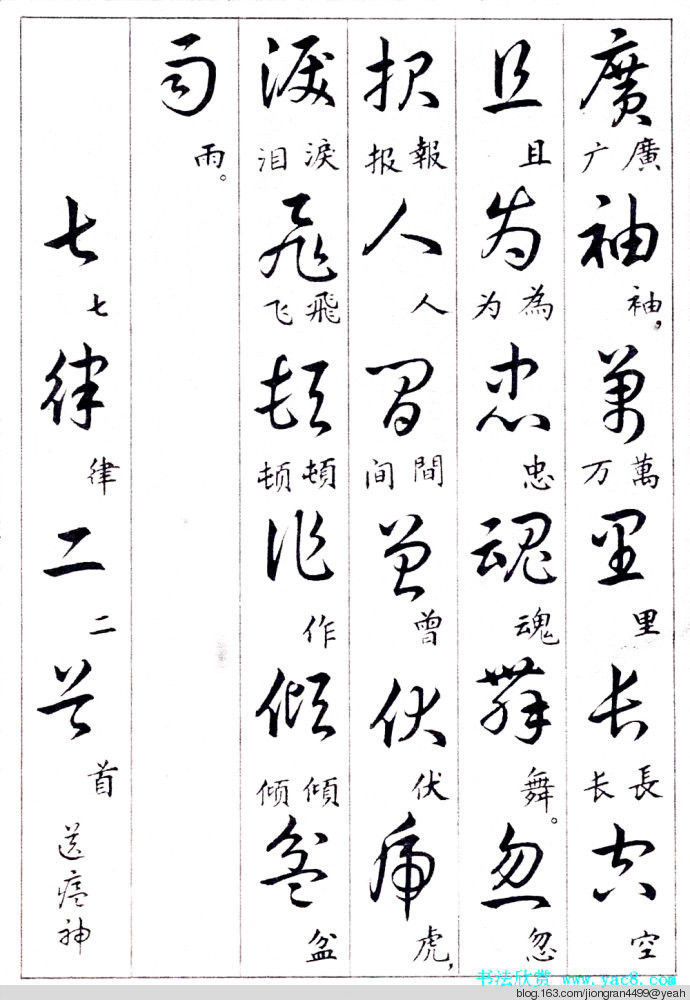 廣廣广袖袖，萬萬万里里長長长空空
且且為為为忠忠魂魂舞舞。忽忽
報報报人人間間间曾曾伏伏虎虎，
淚淚泪飛飛飞頓頓顿作作傾傾倾盆盆
雨雨。
七七律律二二首首送瘟神
书法欣赏 www.yac8.com
blog.163.com/jiongran4499@yeah